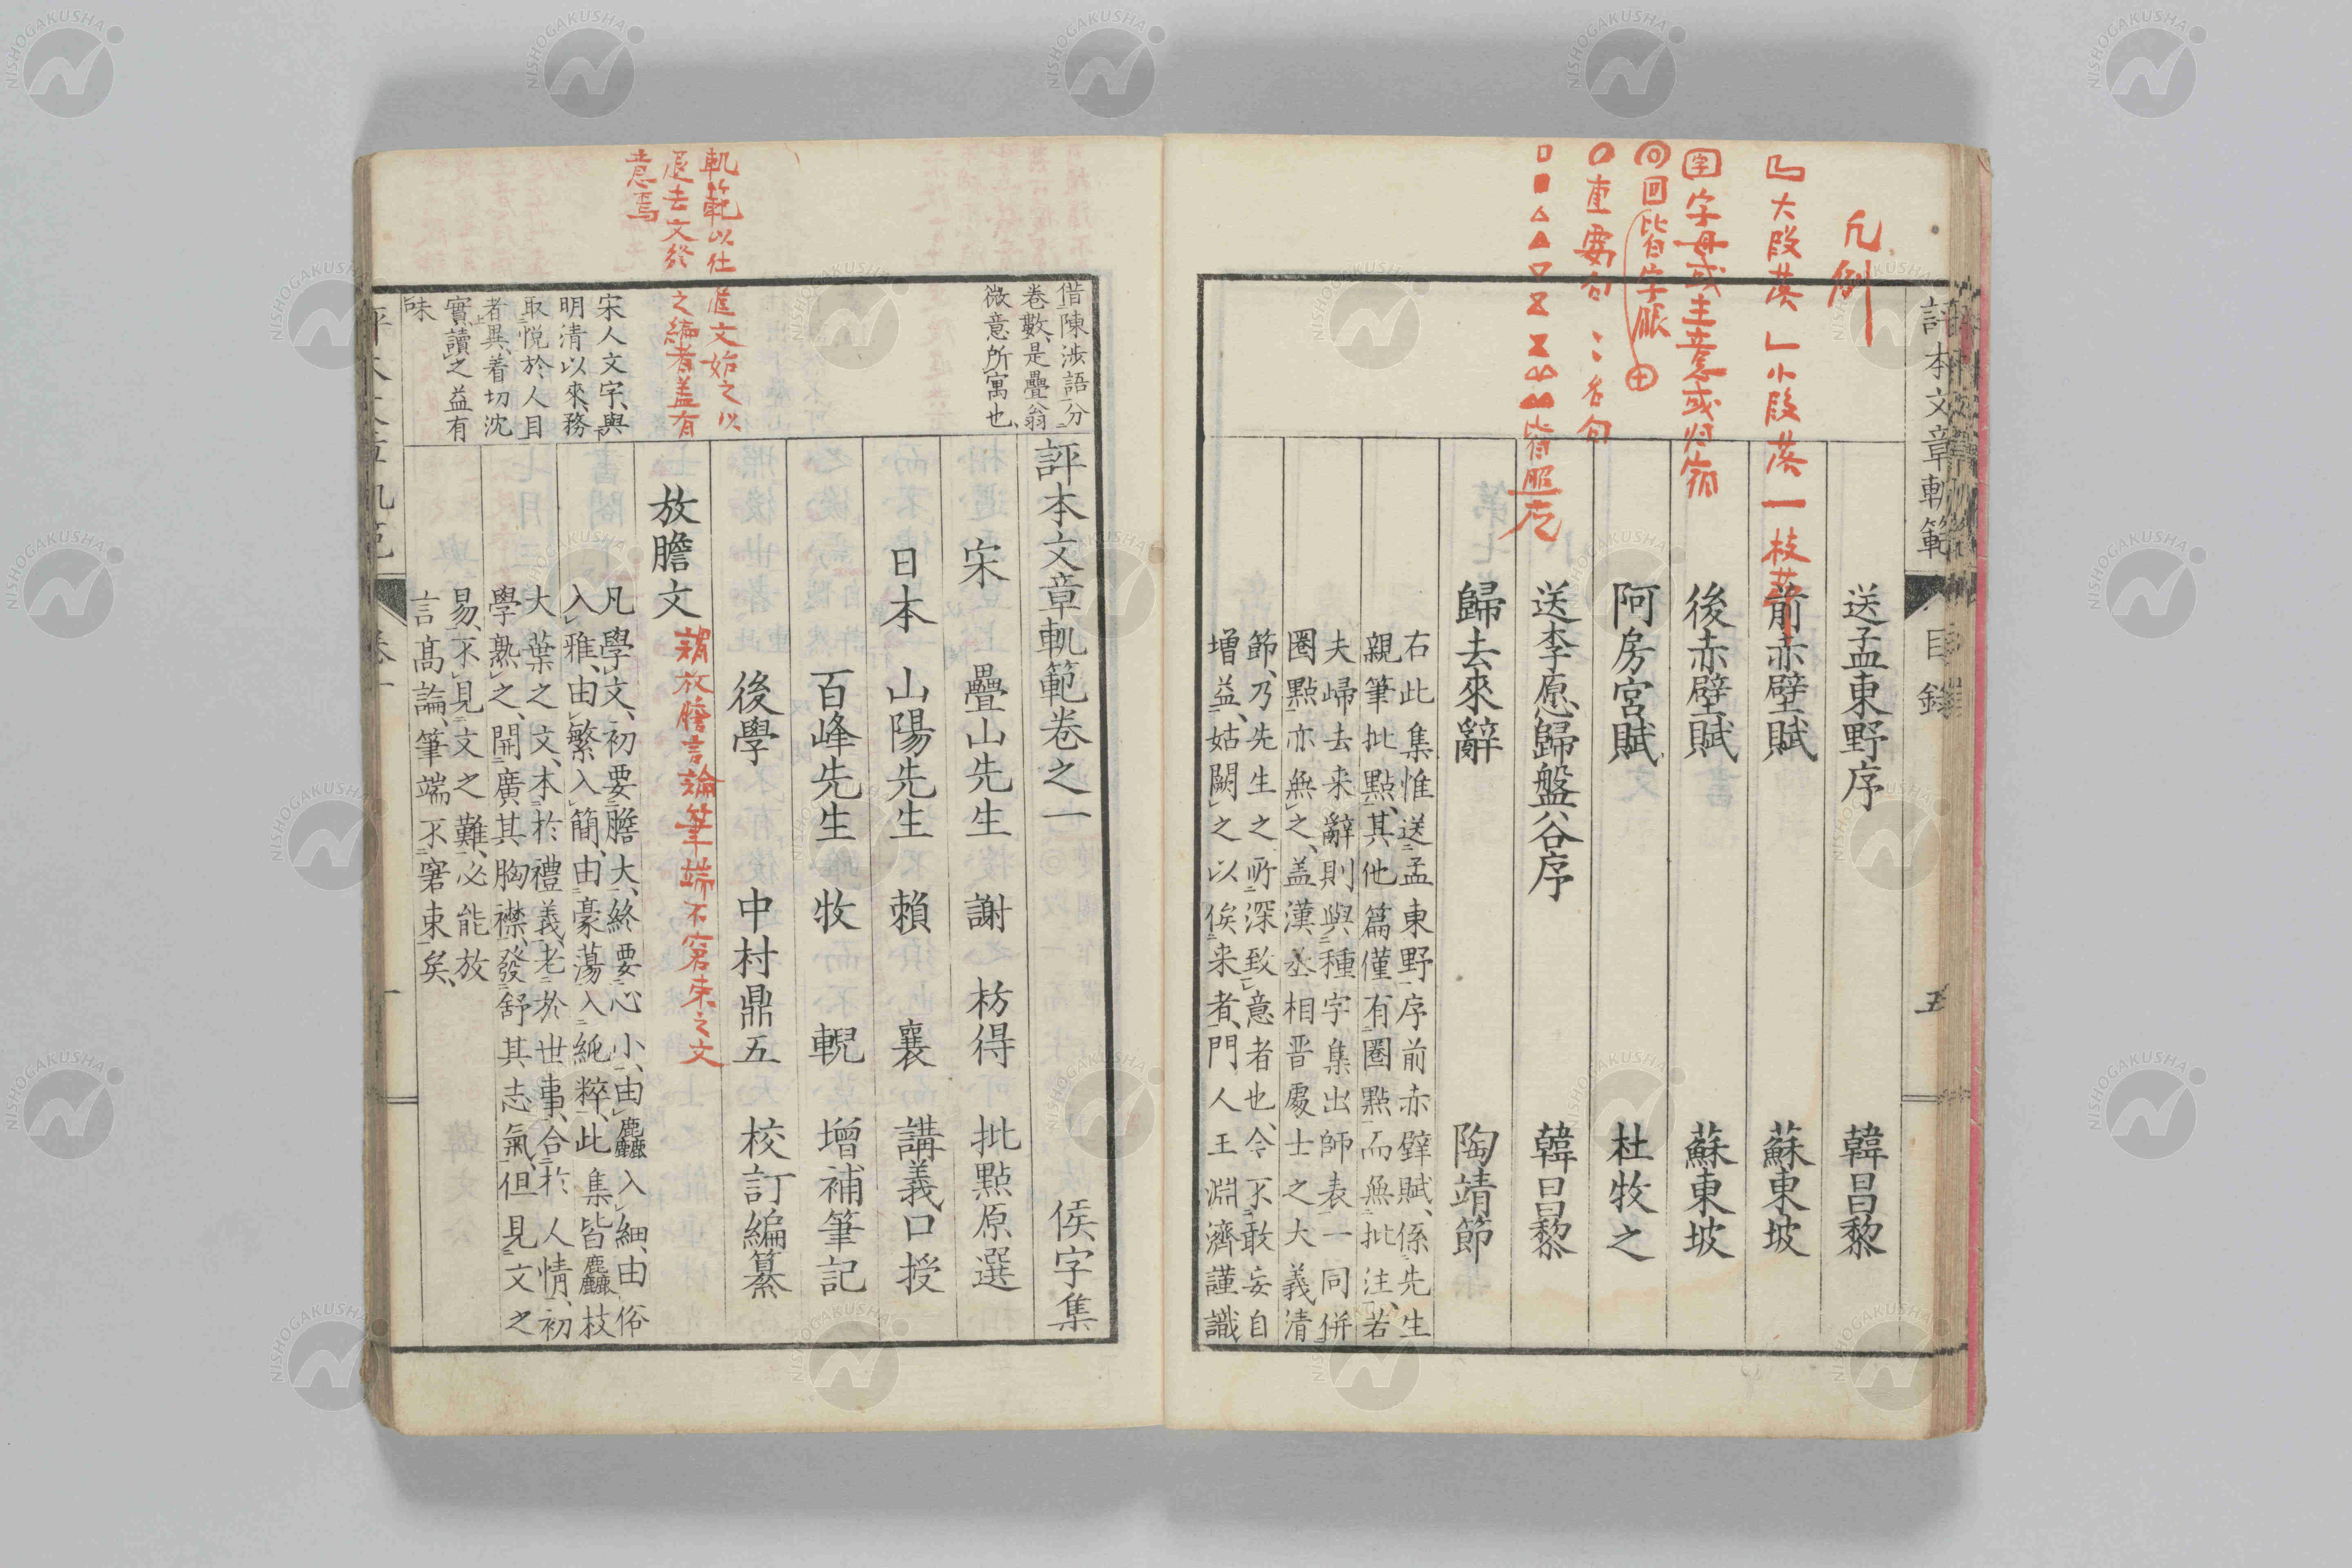 凡例
大段落 」小段落 一枝葉
字 字母或主意或归宿
回 皆字眼
重要句 名句
皆照应
評本文章軌範 目錄 五
送孟東野序 韓昌黎
前赤壁賦 蘇東坡
後赤壁賦 蘇東坡
阿房宮賦 杜牧之
送李愿歸盤谷序 韓昌黎
歸去來辭 陶靖節
右此集惟送孟東野序前赤壁賦、係先生
親筆批點、其他篇僅有圈點而無批注、若
夫歸去来辭則與種字集出師表一同併
圈點亦無之、盖漢丞相晋處士之大義清
節、乃先生之所深致意者也、今不敢妄自
增益、姑闕之以俟来者、門人王淵濟謹識
借陳涉語分
卷數、是疊翁
微意所寓也、
評本文章軌範卷之一 侯字集
宋 疊山先生 謝 枋得 批點原選
日本 山陽先生 賴 襄 講義口授
百峰先生 牧 輗 增補筆記
後學 中村鼎五 校訂編纂
軌範以仕進文始之以
退去文終之編者盖有
意焉
宋人文字、與
明清以來、務
取悅於人目
者異、着切沈
實、讀之益有
味
放膽文
謂放膽言論筆端不窘束之文
凡學文、初要膽大、終要心小、由麤入細、由俗
入雅、由繁入簡、由豪蕩入純粹、此集皆麤枝
大葉之文、本於禮義、老於世事、合於人情、初
學熟之、開廣其胸襟、發舒其志氣、但見文之
易、不見文之難、必能放
言高論、筆端不窘束矣、